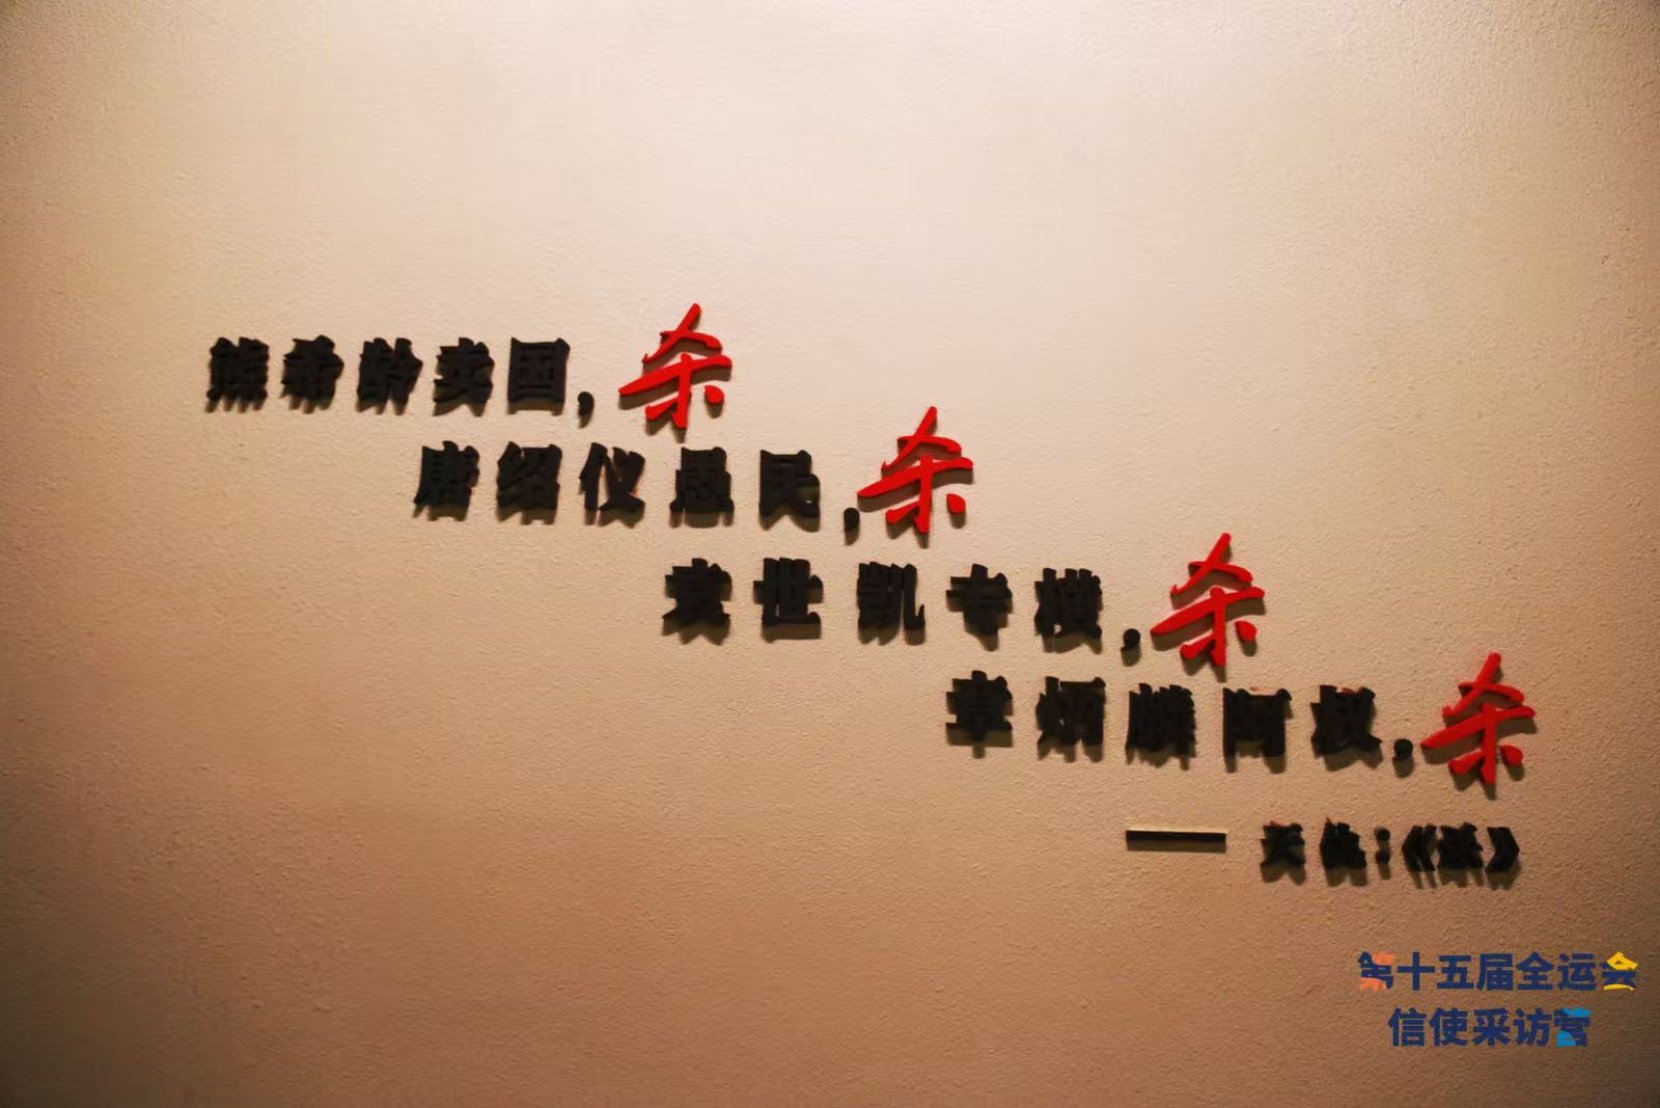 熊希龄卖国,杀
唐绍仪愚民,杀
袁世凯专横,杀
章炳麟阿权,杀
—— 天仇:《杀》
第十五届全运会
信使采访营